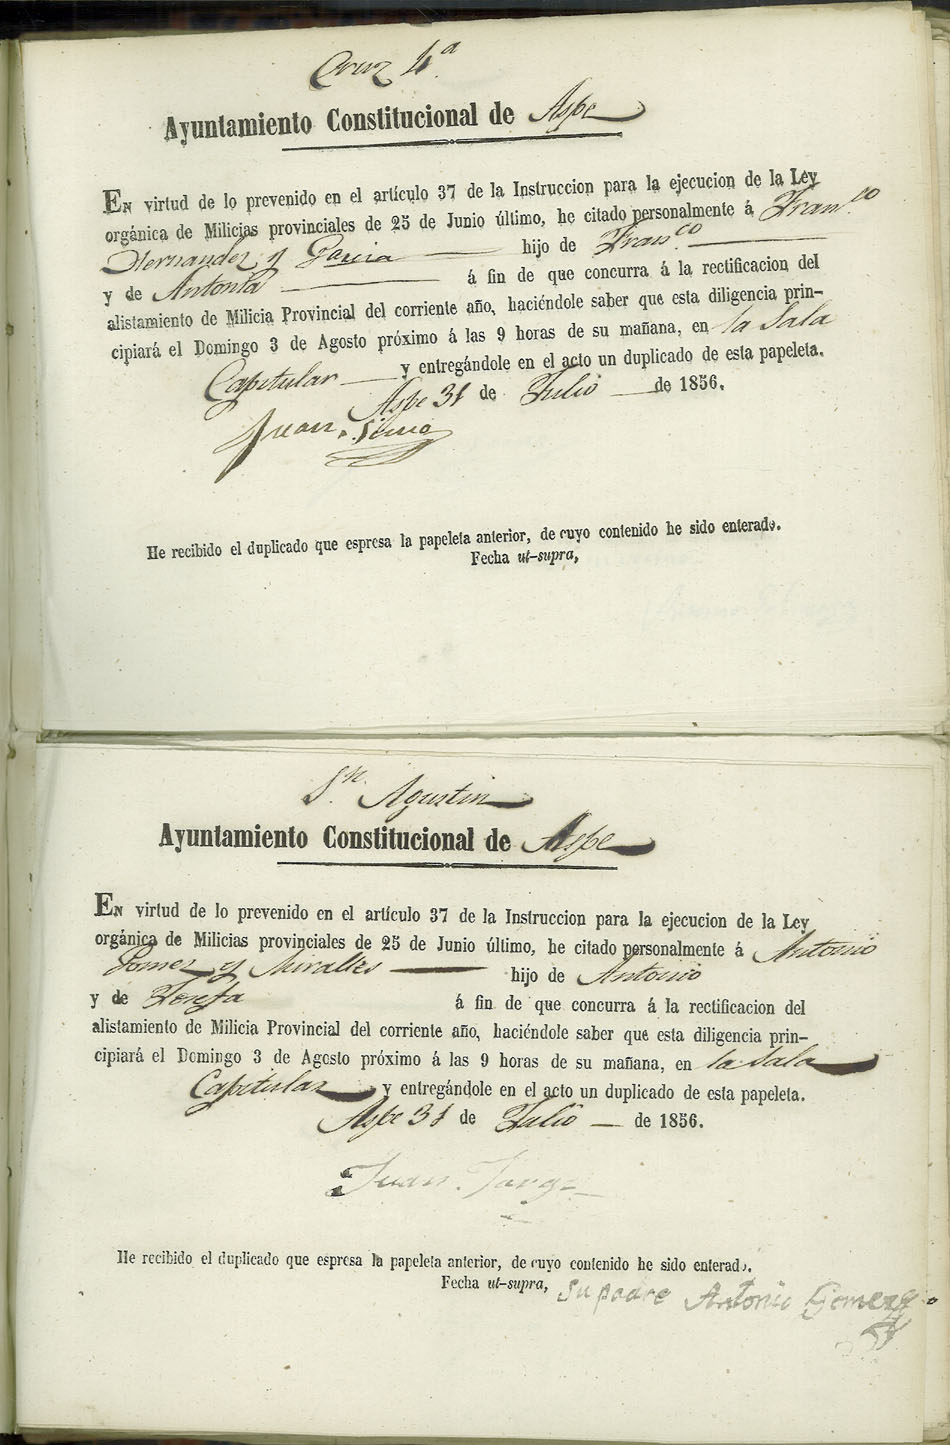 Cruz 4.ª
Ayuntamiento Constitucional de Aspe
En virtud de lo prevenido en el artículo 37 de la Instruccion para la ejecucion de la Ley
orgánica de Milicias provinciales de 25 de Junio último, he citado personalmente á Fran.co
Hernandez y Garcia hijo de Fran.co
y de Antonia á fin de que concurra á la rectificacion del
alistamiento de Milicia Provincial del corriente año, haciéndole saber que esta diligencia prin-
cipiará el Domingo 3 de Agosto próximo á las 9 horas de su mañana, en la Sala
Capitular y entregándole en el acto un duplicado de esta papeleta.
Aspe 31 de Julio de 1856.
Juan
He recibido el duplicado que espresa la papeleta anterior, de cuyo contenido he sido enterado.
Fecha ut-supra,
S.n Agustin
Ayuntamiento Constitucional de Aspe
En virtud de lo prevenido en el artículo 37 de la Instruccion para la ejecucion de la Ley
orgánica de Milicias provinciales de 25 de Junio último, he citado personalmente á Antonio
Gomez y Miralles hijo de Antonio
y de Josefa á fin de que concurra á la rectificacion del
alistamiento de Milicia Provincial del corriente año, haciéndole saber que esta diligencia prin-
cipiará el Domingo 3 de Agosto próximo á las 9 horas de su mañana, en la Sala
Capitular y entregándole en el acto un duplicado de esta papeleta.
Aspe 31 de Julio de 1856.
Juan Jorge
He recibido el duplicado que espresa la papeleta anterior, de cuyo contenido he sido enterado.
Fecha ut-supra, Su padre Antonio Gomez